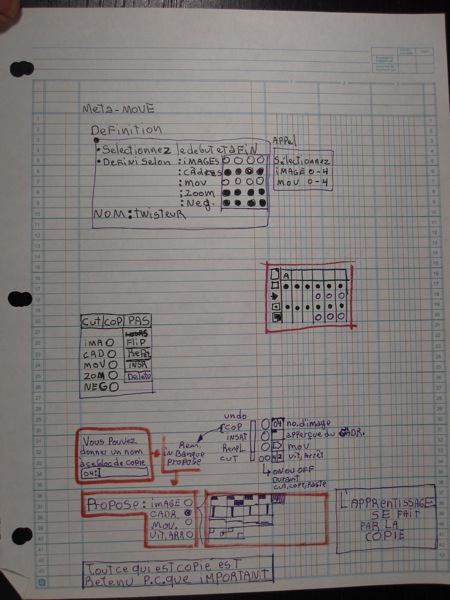 Meta-MOVE
Definition
• Selectionnez le debut et la FiN
• DeFini Selon : iMAGES
: cadres
: mov
: Zoom
: Neg.
NOM: twisteur
APPel
Selectionnez
iMAGE 0-4
MOV 0-4
A
CUT COP PAS
iMA FliP
CAD
MOV INSR
ZOM Delete
NEG
undo
COP
INSRT
Repl.
CUT
04 no. d'image
apperçue du CADR.
MOV
vit, Arrêt
ON OU OFF
DURANT
CUT, COPY, PASTE
Vous Pouvez
donner un nom
a ce bloc de COPIE
04:
Rem.
in Banque
PROPOSE
PROPOSE: iMAGE
CADR
MOV.
Vit, ARR
L'APPRENTISSAGE
SE FAIT
PAR LA
COPIE
Tout ce qui est copié est
Retenu P.C.que iMPORTANT